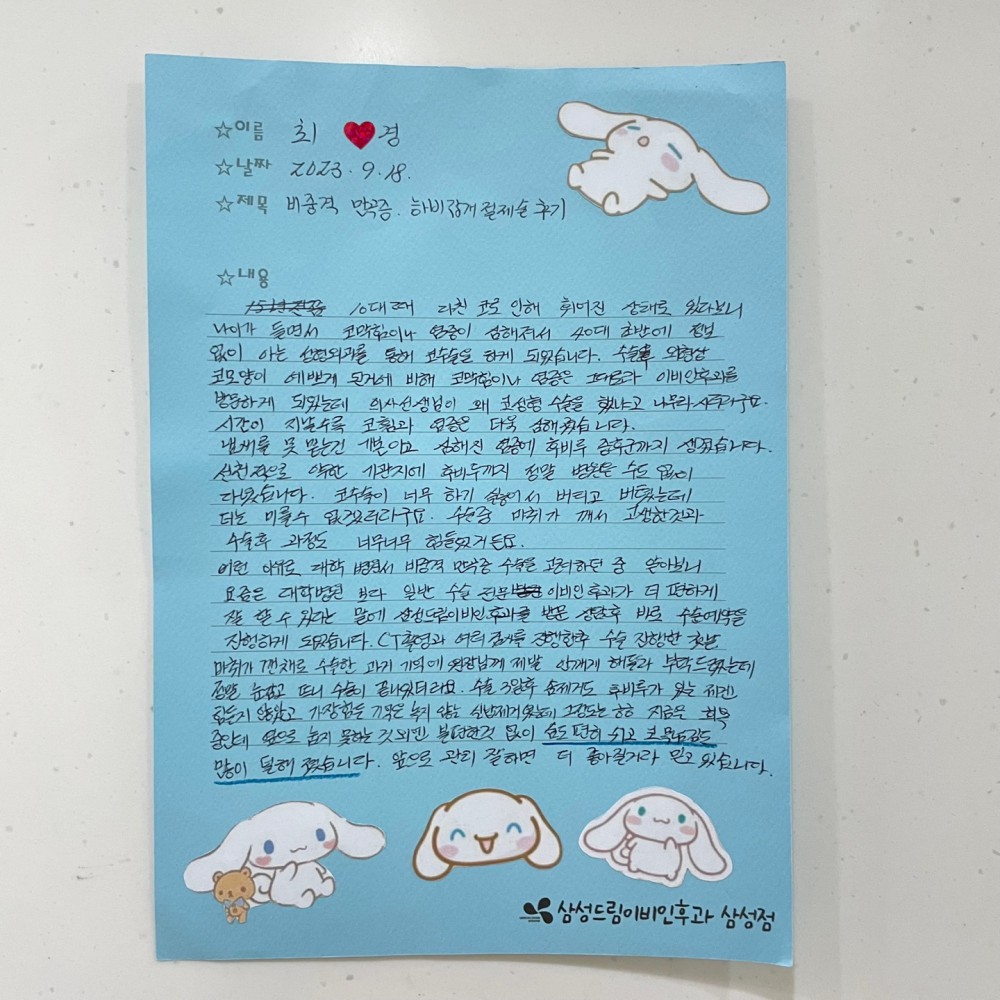 ☆이름 최 ♥경
☆날짜 2023. 9. 18.
☆제목 비중격 만곡증. 하비갑개 절제술 후기
☆내용
10대때 다친 코로 인해 휘어진 상태로 있다보니
나이가 들면서 코막힘이나 염증이 심해져서 40대 초반에 정보
없이 아는 성형외과를 통해 코수술을 하게 되었습니다. 수술후 외형상
코모양이 예쁘게 된거에 비해 코막힘이나 염증은 그대로라 이비인후과를
방문하게 되었는데 의사선생님이 왜 코성형 수술을 했냐고 나무라시더라구요.
시간이 지날수록 코힘과 염증은 더욱 심해졌습니다.
냄새를 못 맡는건 기본이고 심해진 염증에 후비루 증후군까지 생겼습니다.
선천적으로 약한 기관지에 후비루까지 정말 병원을 수도 없이
다녔습니다. 코수술이 너무 하기 싫어서 버티고 버텼는데
더는 미룰수 없겠더라구요. 수술중 마취가 깨서 고생한것과
수술후 과정도 너무너무 힘들었거든요.
이런 이유로 대학 병원서 비중격 만곡증 수술을 고려하던 중 알아보니
요즘은 대학병원 보다 일반 수술 전문 이비인후과가 더 편하게
잘 할 수 있다는 말에 삼성드림이비인후과를 방문 상담후 바로 수술예약을
진행하게 되었습니다. CT촬영과 여러 검사를 진행한후 수술 진행한 것은
마취가 깬채로 수술한 과거 기억에 원장님께 제발 안깨게 해달라 부탁드렸는데
정말 눈감고 뜨니 수술이 끝나있더라요. 수술 3일후 솜제거도 후비루가 있는 저겐
힘들지 않았고 가장힘든 기억은 녹지 않는 실밥제거였는데 그정도는 ㅎㅎ 지금은 회복
중인데 옆으로 눕지 못하는 것 외엔 불편한것 없이 숨도 편히 쉬고 코목넘김도
많이 덜해 졌습니다. 앞으로 관리 잘하면 더 좋아질거라 믿고 있습니다.
삼성드림이비인후과 삼성점